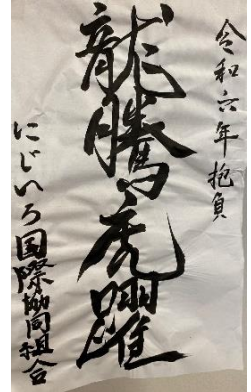 令和六年抱負
龍騰虎躍
にじいろ国際協同組合